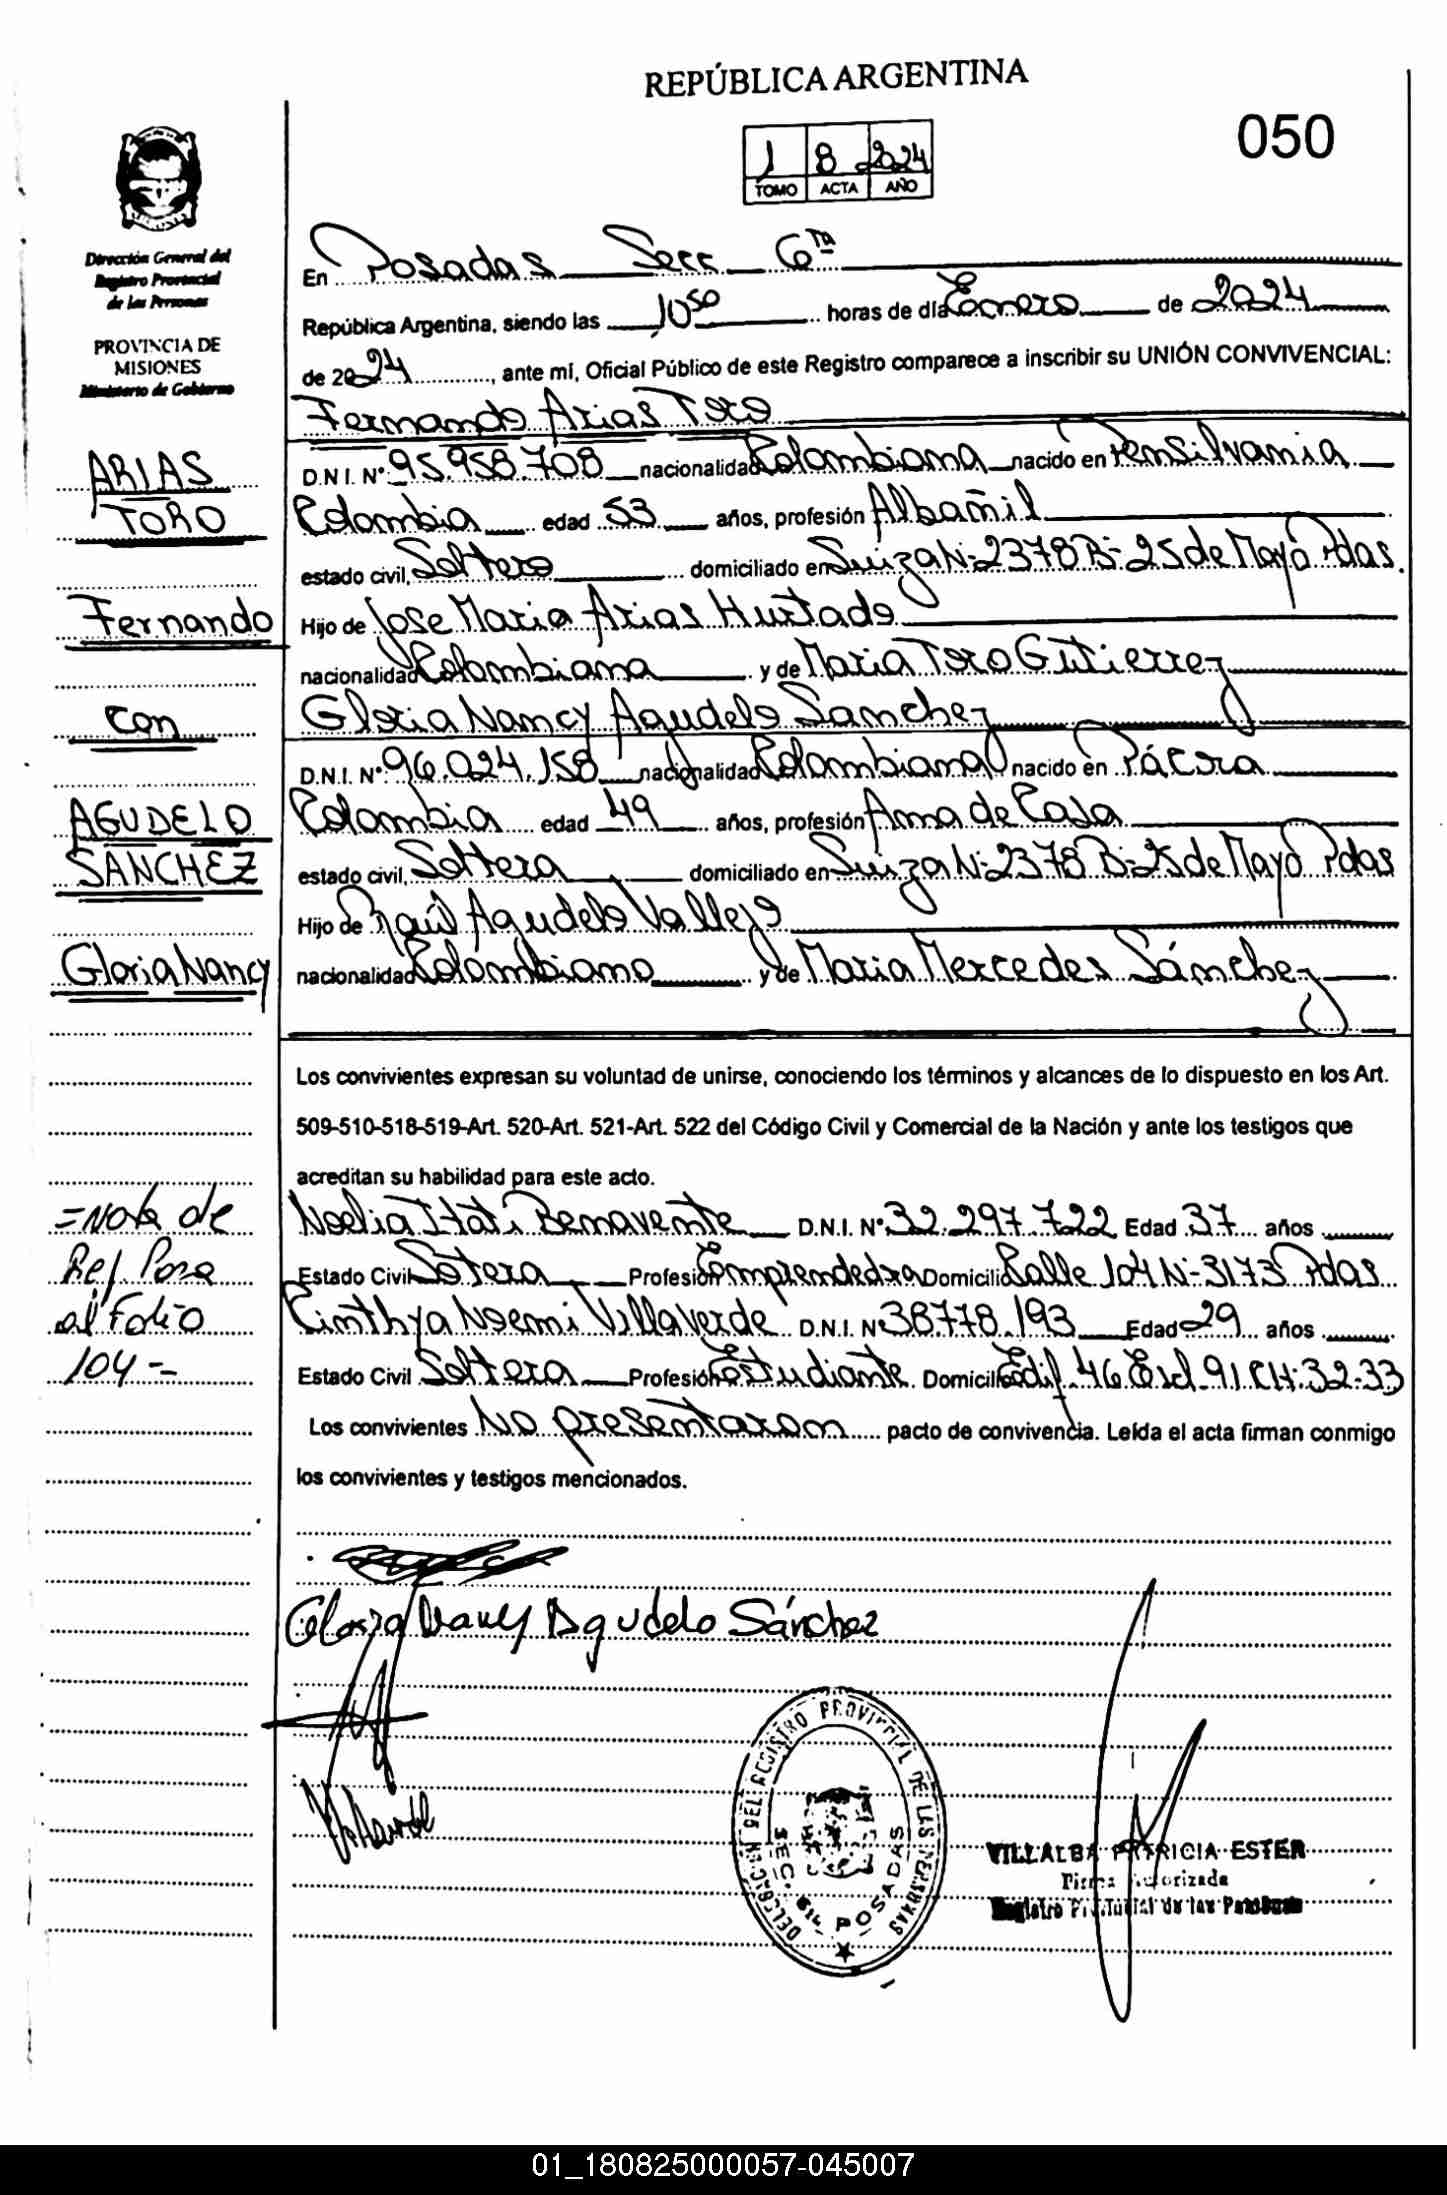 REPÚBLICA ARGENTINA
050
1 8 2024
TOMO ACTA AÑO
Dirección General del
Registro Provincial
de las Personas
PROVINCIA DE
MISIONES
Ministerio de Gobierno
En Posadas Secc 6ta
República Argentina, siendo las 10:50 horas de día Enero de 2024
de 2024, ante mí, Oficial Público de este Registro comparece a inscribir su UNIÓN CONVIVENCIAL:
Fernando Arias Toro
D.N.I. Nº 95.958.708 nacionalidad Colombiana nacido en Pensilvania
Colombia edad 53 años, profesión Albañil
estado civil, Soltero domiciliado en Suiza Nº 2378 Bº 25 de Mayo Pdas.
Hijo de Jose Maria Arias Hurtado
nacionalidad Colombiana y de Maria Toro Gutierrez
Gloria Nancy Agudelo Sanchez
D.N.I. Nº 96.024.158 nacionalidad Colombiana nacido en Pácora
Colombia edad 49 años, profesión Ama de Casa
estado civil, Soltera domiciliado en Suiza Nº 2378 Bº 25 de Mayo Pdas
Hijo de Raúl Agudelo Vallejo
nacionalidad Colombiana y de Maria Mercedes Sánchez
ARIAS
TORO
Fernando
con
AGUDELO
SANCHEZ
Gloria Nancy
Los convivientes expresan su voluntad de unirse, conociendo los términos y alcances de lo dispuesto en los Art.
509-510-518-519-Art. 520-Art. 521-Art. 522 del Código Civil y Comercial de la Nación y ante los testigos que
acreditan su habilidad para este acto.
Noelia Itati Benavente D.N.I. Nº 32.297.722 Edad 37 años
Estado Civil Sotera Profesión Emprendedra Domicilio Calle 104 Nº 3173 Pdas
Cinthya Noemi Villaverde D.N.I. Nº 38.778.193 Edad 29 años
Estado Civil Soltera Profesión Estudiante Domicilio Edif. 46 Escl 91 CH: 32-33
Los convivientes No presentaron pacto de convivencia. Leída el acta firman conmigo
los convivientes y testigos mencionados.
=Nota de
Ref. Pasa
al Folio
104-=
Gloria Nancy Agudelo Sánchez
DELEGACION DEL REGISTRO PROVINCIAL DE LAS PERSONAS
SEC. 6ta POSADAS
VILLALBA PATRICIA ESTER
Firma Autorizada
Registro Provincial de las Personas
01_180825000057-045007